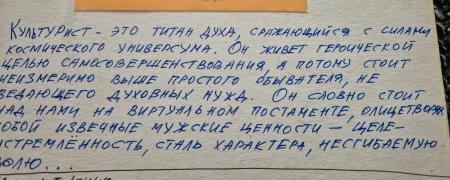 Культурист - это титан духа, сражающийся с силами
космического универсума. Он живет героической
целью самосовершенствования, а потому стоит
неизмеримо выше простого обывателя, не
ведающего духовных нужд. Он словно стоит
над нами на виртуальном постаменте, олицетворяя
собой извечные мужские ценности — целе-
устремлённость, сталь характера, несгибаемую
волю...